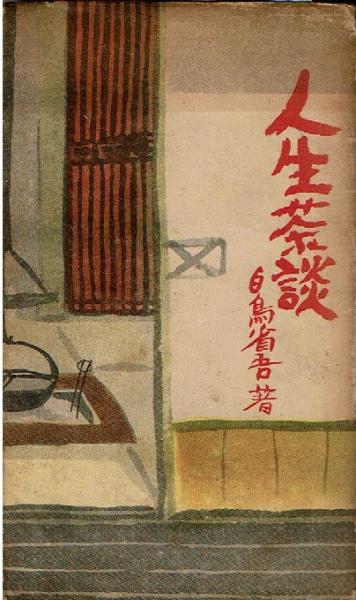 人生茶談
白鳥省吾著